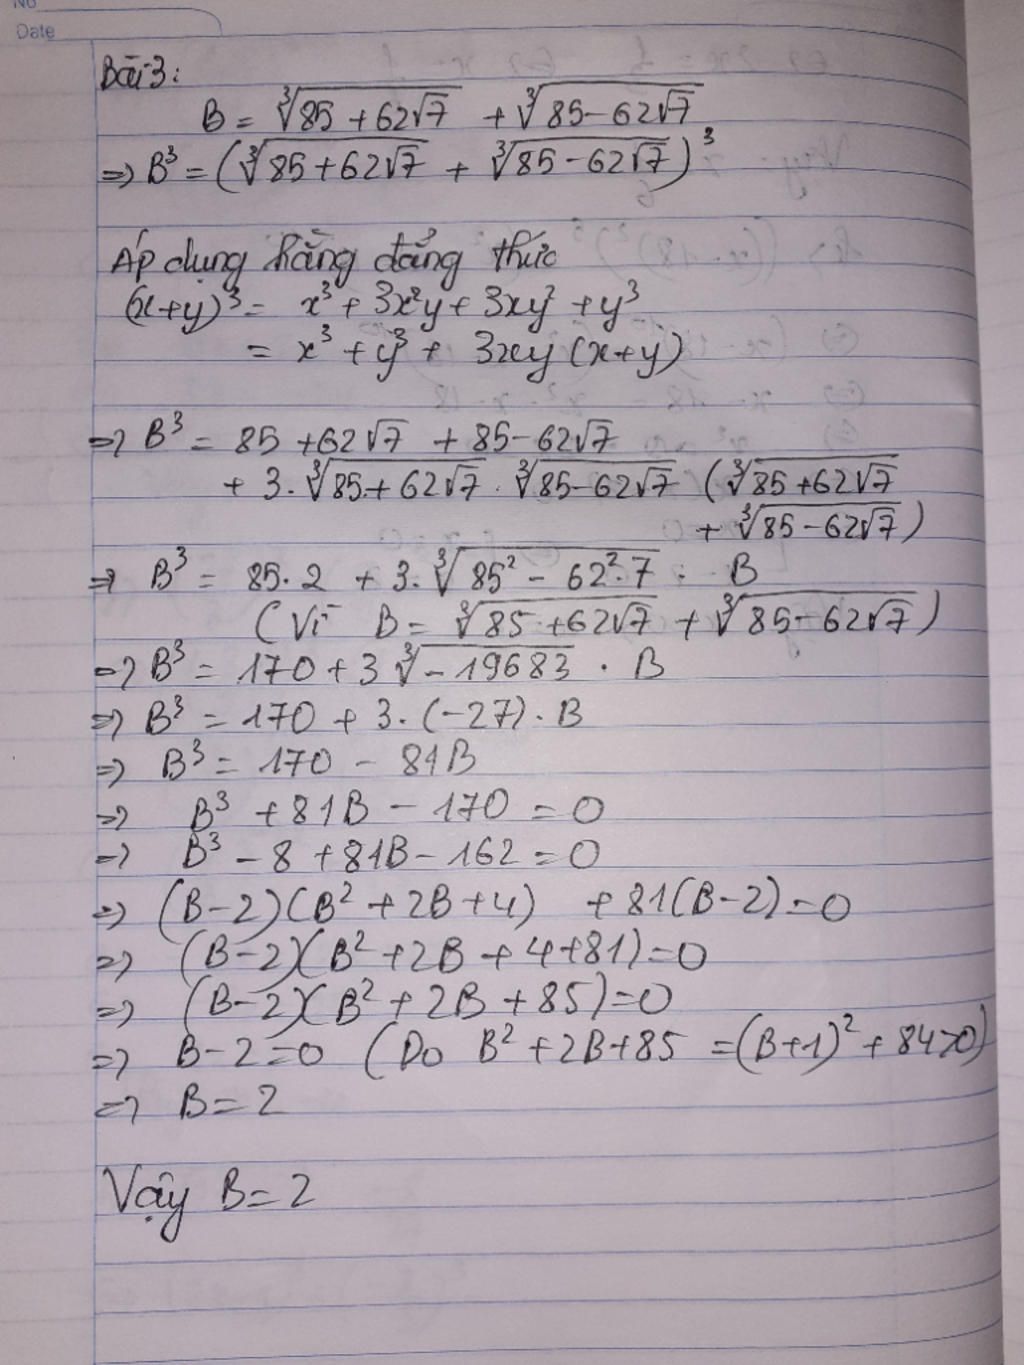 No
Date
Bài 3:
B = ∛(85 + 62√7) + ∛(85 - 62√7)
=> B³ = (∛(85 + 62√7) + ∛(85 - 62√7))³
Áp dụng hằng đẳng thức
(x+y)³ = x³ + 3x²y + 3xy² + y³
= x³ + y³ + 3xy (x+y)
=> B³ = 85 + 62√7 + 85 - 62√7
+ 3. ∛(85 + 62√7) . ∛(85 - 62√7) (∛(85 + 62√7)
+ ∛(85 - 62√7))
=> B³ = 85.2 + 3. ∛(85² - 62².7) . B
(Vì B = ∛(85 + 62√7) + ∛(85 - 62√7))
=> B³ = 170 + 3 ∛(-19683) . B
=> B³ = 170 + 3. (-27) . B
=> B³ = 170 - 81B
=> B³ + 81B - 170 = 0
=> B³ - 8 + 81B - 162 = 0
=> (B-2)(B² + 2B + 4) + 81(B-2) = 0
=> (B-2)(B² + 2B + 4 + 81) = 0
=> (B-2)(B² + 2B + 85) = 0
=> B - 2 = 0 (Do B² + 2B + 85 = (B+1)² + 84 > 0)
=> B = 2
Vậy B = 2